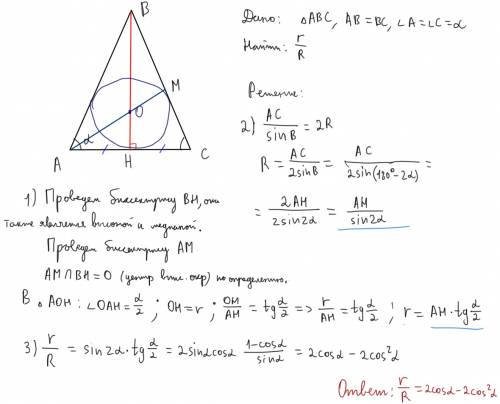 B
M
O
α
A
H
C
Дано: △ABC, AB=BC, ∠A=∠C=α
Найти: r/R
Решение:
2) AC/sinB = 2R
R = AC/2sinB = AC/2sin(180°-2α) =
= 2AH/2sin2α = AH/sin2α
1) Проведем биссектрису BH, она
также является высотой и медианой.
Проведем биссектрису AM
AM∩BH=O (центр впис. окр) по определению.
В △AOH: ∠OAH=α/2; OH=r; OH/AH = tg α/2 => r/AH = tg α/2; r = AH·tg α/2
3) r/R = sin2α·tg α/2 = 2sinαcosα·(1-cosα)/sinα = 2cosα-2cos²α
Ответ: r/R = 2cosα-2cos²α